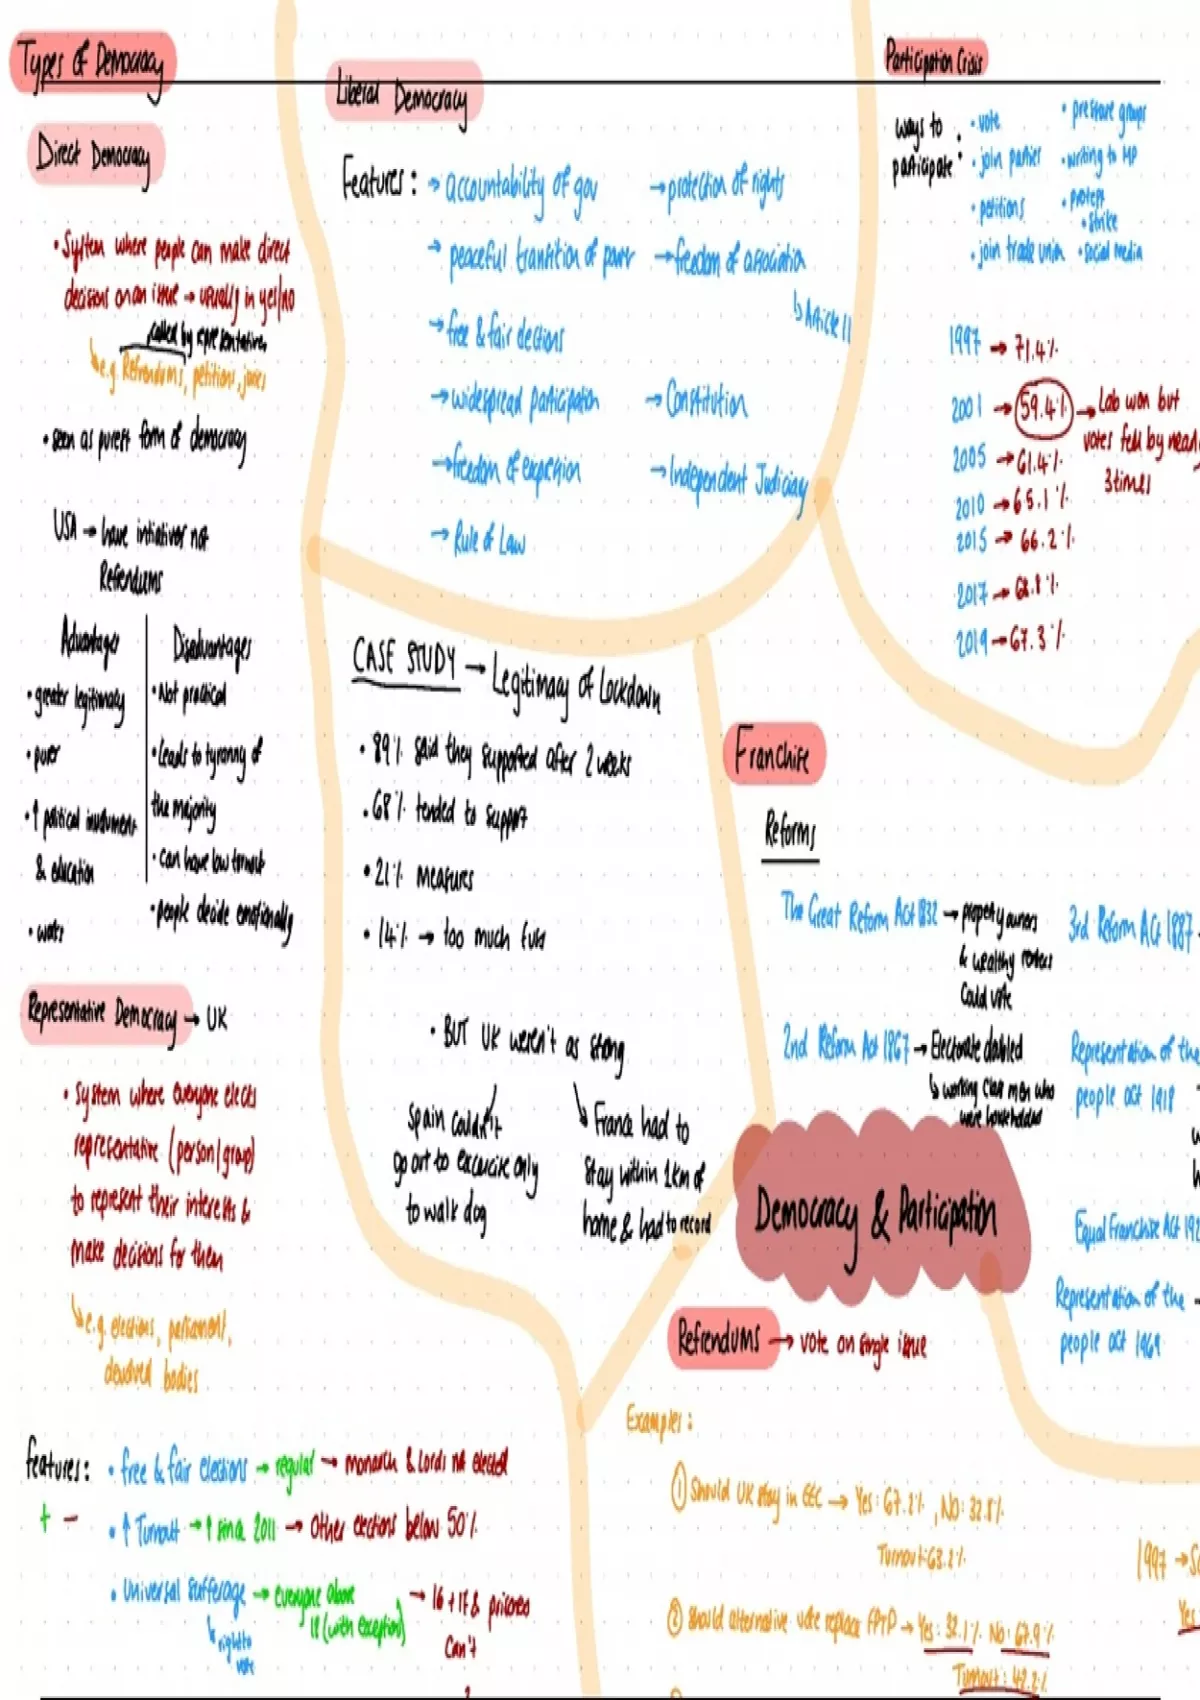 Types of Democracy
Direct Democracy
• System where people can make direct
decisions on an issue → usually in yes/no
called by representatives
↳ e.g. Refrendums, petitions, juries
• seen as purest form of democracy
USA → have intiatives not
Refrendums
Advantages
• greater legitimacy
• purer
• ↑ political involvment
& education
• works
Disadvantages
• Not practical
• Leads to tyranny of
the majority
• can have low turnout
• people decide emotionally
Representative Democracy → UK
• System where everyone elects
representative (person/group)
to represent their interests &
make decisions for them
↳ e.g. elections, parliament,
devolved bodies
features:
+ −
• free & fair elections → regular → monarch & Lords not elected
• ↑ Turnout → ↑ since 2011 → other elections below 50%
• Universal sufferage → everyone above
18 (with exception)
→ 16 + 17 & prisoners
can't
↳ right to
vote
Liberal Democracy
Features:
→ accountability of gov
→ protection of rights
→ peaceful transition of power
→ freedom of association
↳ Article 11
→ free & fair elections
→ widespread participation
→ Constitution
→ freedom of expression
→ Independent Judiciary
→ Rule of Law
CASE STUDY → Legitimacy of Lockdown
• 89% said they supported after 2 weeks
• 68% tended to support
• 21% measures
• 14% → too much fuss
• BUT UK weren't as strong
Spain couldn't
go out to excercise only
to walk dog
↘ France had to
stay within 1km of
home & had to record
Participation Crisis
ways to
participate:
• vote
• join parties
• petitions
• join trade union
• pressure groups
• writing to MP
• protest
• strike
• social media
1997 → 71.4%
2001 → 59.4% → Lab won but
votes fell by near
3 times
2005 → 61.4%
2010 → 65.1%
2015 → 66.2%
2017 → 68.8%
2019 → 67.3%
Franchise
Reforms
The Great Reform Act 1832 → property owners
& wealthy
could vote
2nd Reform Act 1867 → Electorate doubled
↳ working class men who
were
3rd Reform Act 1887
Representation of the
people act 1918
Equal Franchise Act 192
Representation of the →
people act 1969
Democracy & Participation
Refrendums → vote on single issue
Examples:
① Should UK stay in EEC → Yes: 67.2%, No: 32.8%
Turnout: 63.2%
② Should alternative vote replace FPTP → Yes: 32.1% No: 67.9%
Turnout: 42.2%
1997 → Sc
Yes: